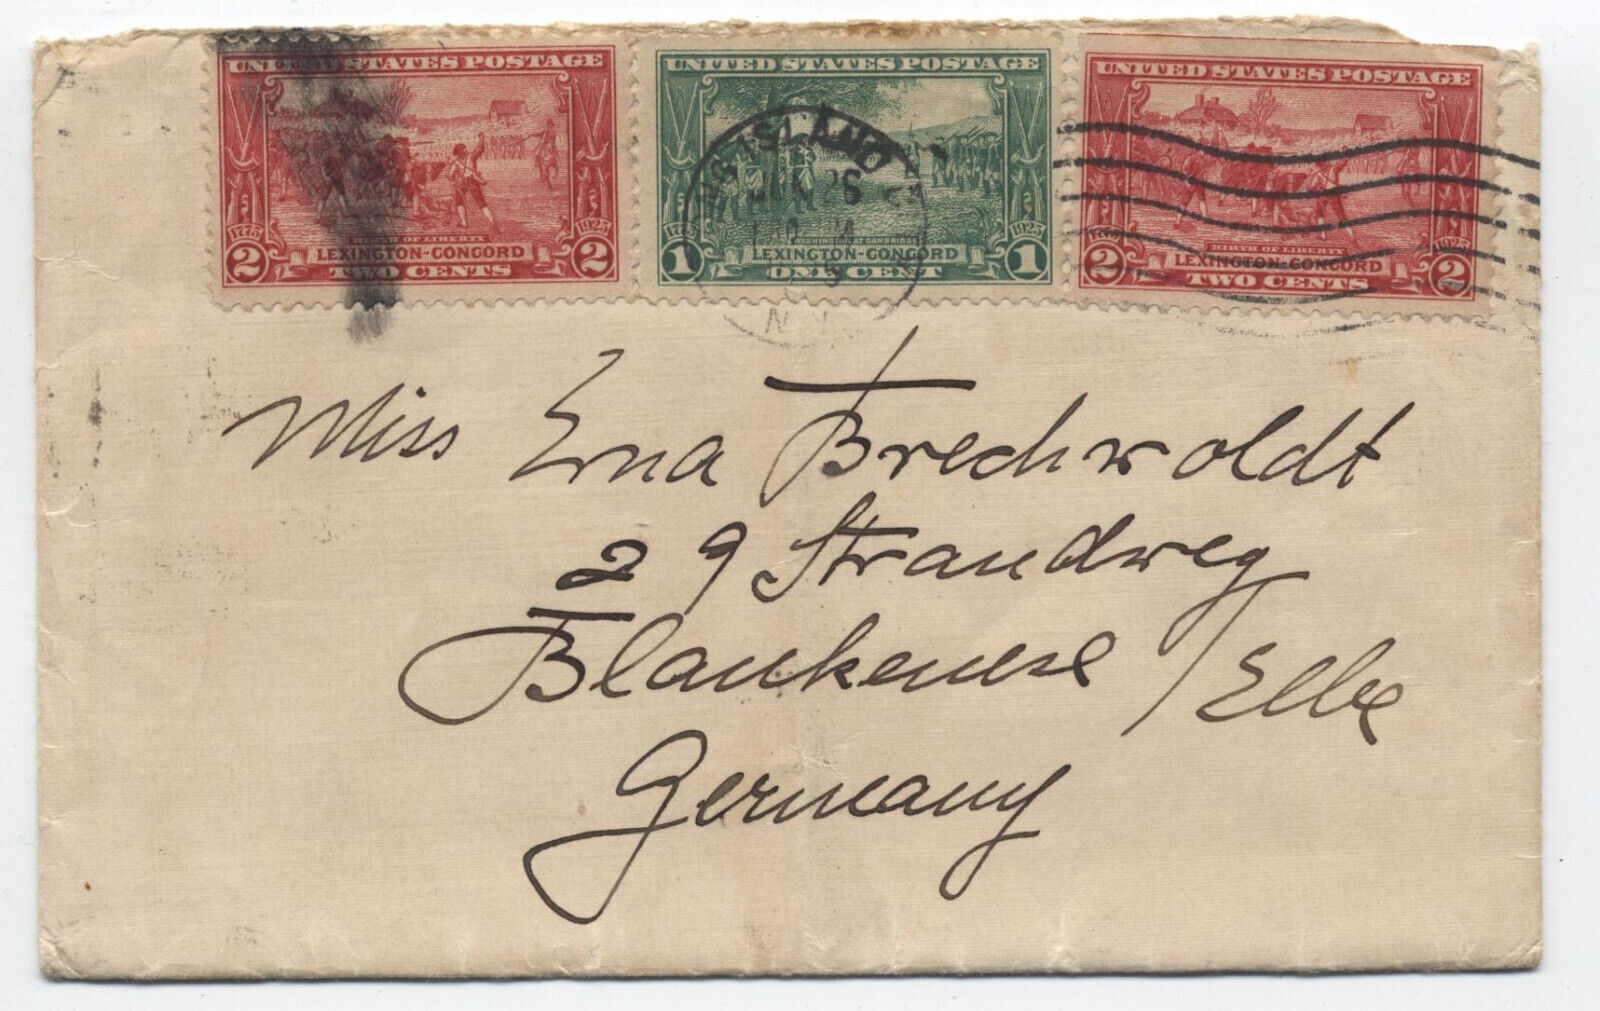 UNITED STATES POSTAGE
1775 1925
BIRTH OF LIBERTY
LEXINGTON-CONCORD
2 TWO CENTS 2
UNITED STATES POSTAGE
1775 1925
WASHINGTON AT CAMBRIDGE
LEXINGTON-CONCORD
1 ONE CENT 1
UNITED STATES POSTAGE
1925
BIRTH OF LIBERTY
LEXINGTON-CONCORD
2 TWO CENTS 2
ISLAND
26
N.Y.
Miss Erna Brechwoldt
29 Strandweg
Blankenese / Elbe
Germany